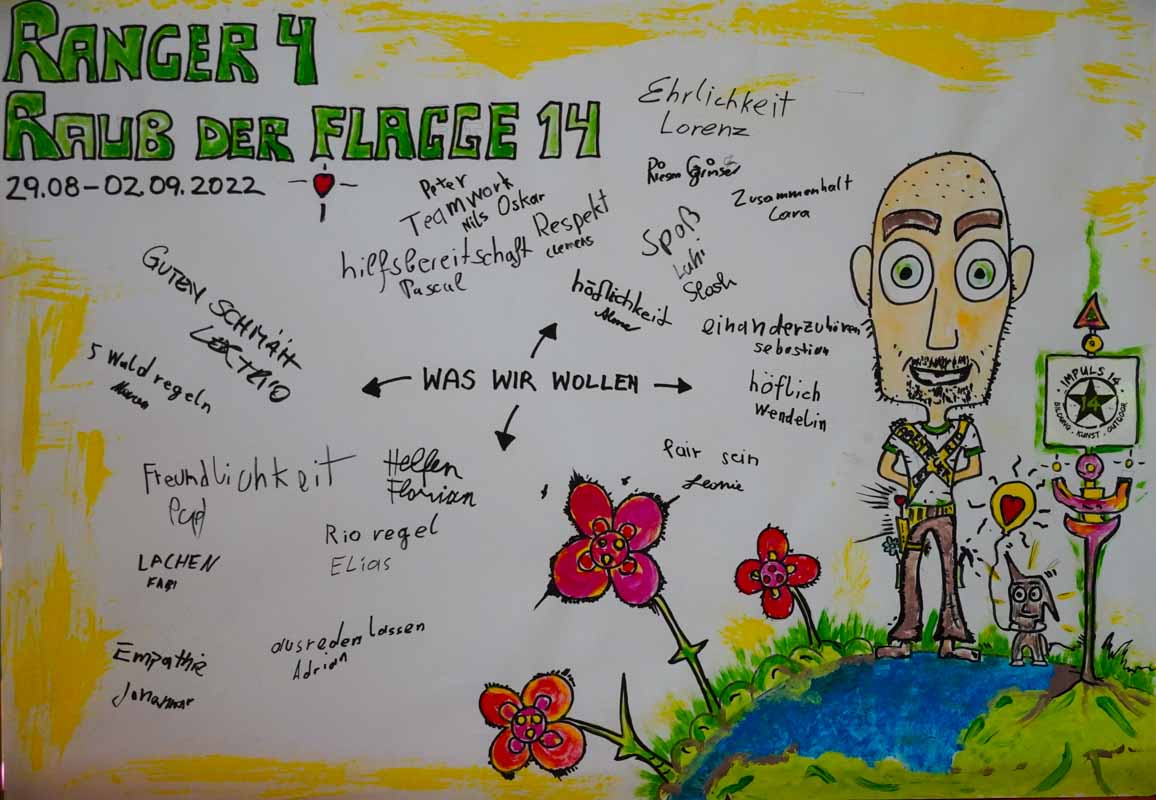 RANGER 4
RAUB DER FLAGGE 14
29.08-02.09.2022
Ehrlichkeit
Lorenz
Riesen Grinser
Zusammenhalt
Lara
Peter
Teamwork
Nils Oskar
Respekt
Clemens
hilfsbereitschaft
Pascal
Spaß
Luhi
Slash
höflichkeit
einanderzuhören
sebastian
GUTEN SCHMÄH
5 Waldregeln
WAS WIR WOLLEN
höflich
Wendelin
fair sein
Leonie
Freundlichkeit
Helfen
Florian
Rio regel
ELias
LACHEN
FABI
Empathie
ausreden lassen
Adrian
IMPULS 14
14
BILDUNG . KUNST . OUTDOOR